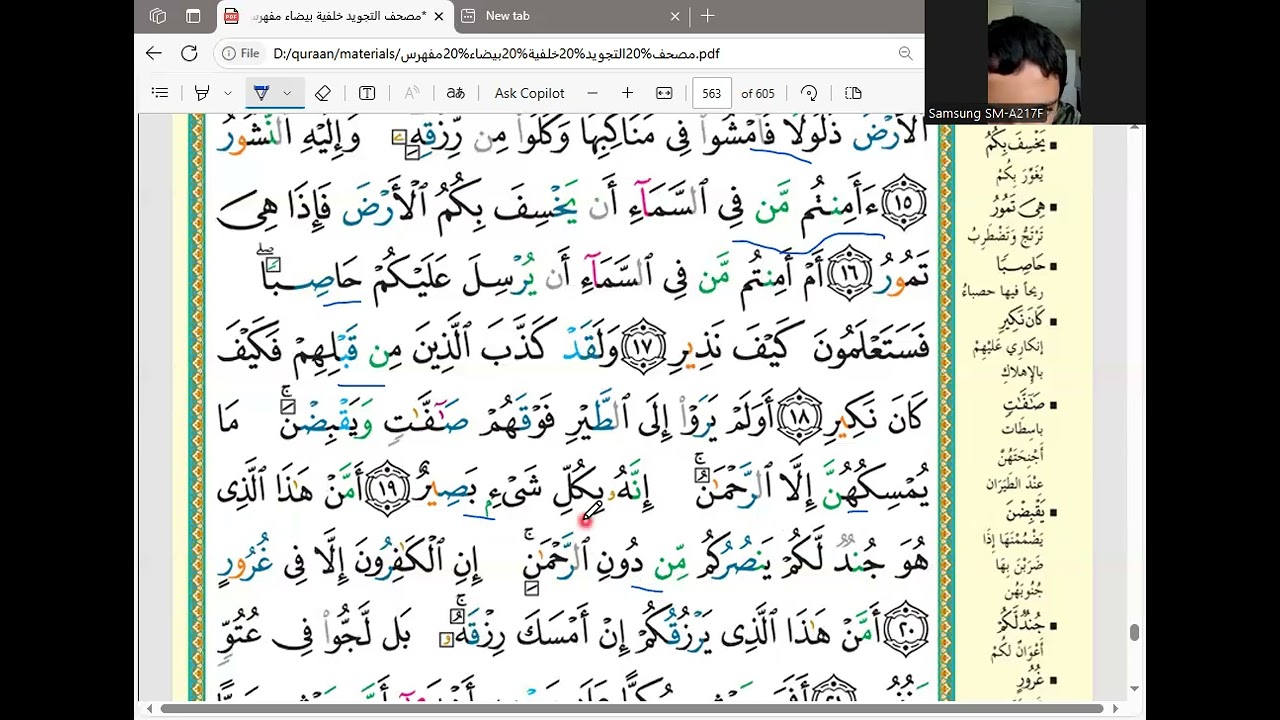 *مصحف التجويد خلفية بيضاء مفهرس
New tab
File
D:/quraan/materials/مصحف%20التجويد%20خلفية%20بيضاء%20مفهرس.pdf
Ask Copilot
563 of 605
Samsung SM-A217F
ٱلْأَرْضَ ذَلُولًا فَٱمْشُوا۟ فِى مَنَاكِبِهَا وَكُلُوا۟ مِن رِّزْقِهِۦ وَإِلَيْهِ ٱلنُّشُورُ
١٥ ءَأَمِنتُم مَّن فِى ٱلسَّمَآءِ أَن يَخْسِفَ بِكُمُ ٱلْأَرْضَ فَإِذَا هِىَ
تَمُورُ ١٦ أَمْ أَمِنتُم مَّن فِى ٱلسَّمَآءِ أَن يُرْسِلَ عَلَيْكُمْ حَاصِبًا ۖ
فَسَتَعْلَمُونَ كَيْفَ نَذِيرِ ١٧ وَلَقَدْ كَذَّبَ ٱلَّذِينَ مِن قَبْلِهِمْ فَكَيْفَ
كَانَ نَكِيرِ ١٨ أَوَلَمْ يَرَوْا۟ إِلَى ٱلطَّيْرِ فَوْقَهُمْ صَٰٓفَّٰتٍ وَيَقْبِضْنَ ۚ مَا
يُمْسِكُهُنَّ إِلَّا ٱلرَّحْمَٰنُ ۚ إِنَّهُۥ بِكُلِّ شَىْءٍۭ بَصِيرٌ ١٩ أَمَّنْ هَٰذَا ٱلَّذِى
هُوَ جُندٌ لَّكُمْ يَنصُرُكُم مِّن دُونِ ٱلرَّحْمَٰنِ ۚ إِنِ ٱلْكَٰفِرُونَ إِلَّا فِى غُرُورٍ
٢٠ أَمَّنْ هَٰذَا ٱلَّذِى يَرْزُقُكُمْ إِنْ أَمْسَكَ رِزْقَهُۥ ۚ بَل لَّجُّوا۟ فِى عُتُوٍّ
يَخْسِفَ بِكُمُ
يُغَوِّرَ بِكُمُ
هِىَ تَمُورُ
تَرْتَجُّ وَتَضْطَرِبُ
حَاصِبًا
ريحاً فيها حصباءُ
كَانَ نَكِيرِ
إنكاري عَلَيْهِمْ
بالإهلاكِ
صَٰٓفَّٰتٍ
باسِطات
أجْنِحَتَهُنَّ
عنْدَ الطيَران
يَقْبِضْنَ
يَضْمُمْنَهَا إذَا
ضَرَبْنَ بِهَا
جُنُوبَهُن
جُندٌ لَّكُمْ
أعْوَانٌ لكُمْ
غُرُورٍ